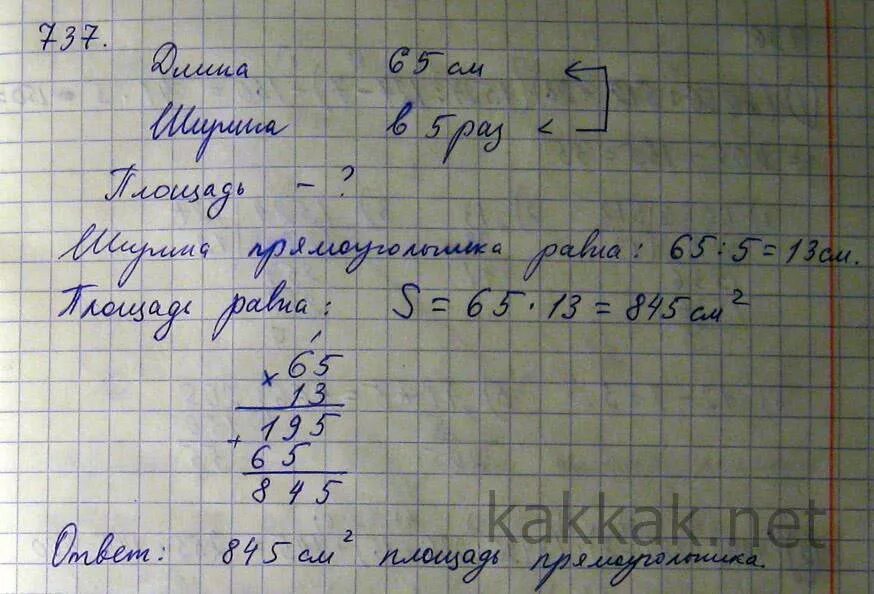 737.
Длина 65 см
Ширина в 5 раз <
Площадь - ?
Ширина прямоугольника равна: 65 : 5 = 13 см.
Площадь равна: S = 65 · 13 = 845 см²
× 65
13
195
+
65
845
kakkak.net
Ответ: 845 см² площадь прямоугольника.